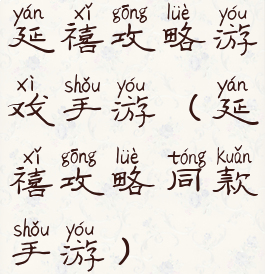 yán xǐ gōng lüè yóu
延禧攻略游
xì shǒu yóu yán
戏手游（延
xǐ gōng lüè tóng kuǎn
禧攻略同款
shǒu yóu
手游）